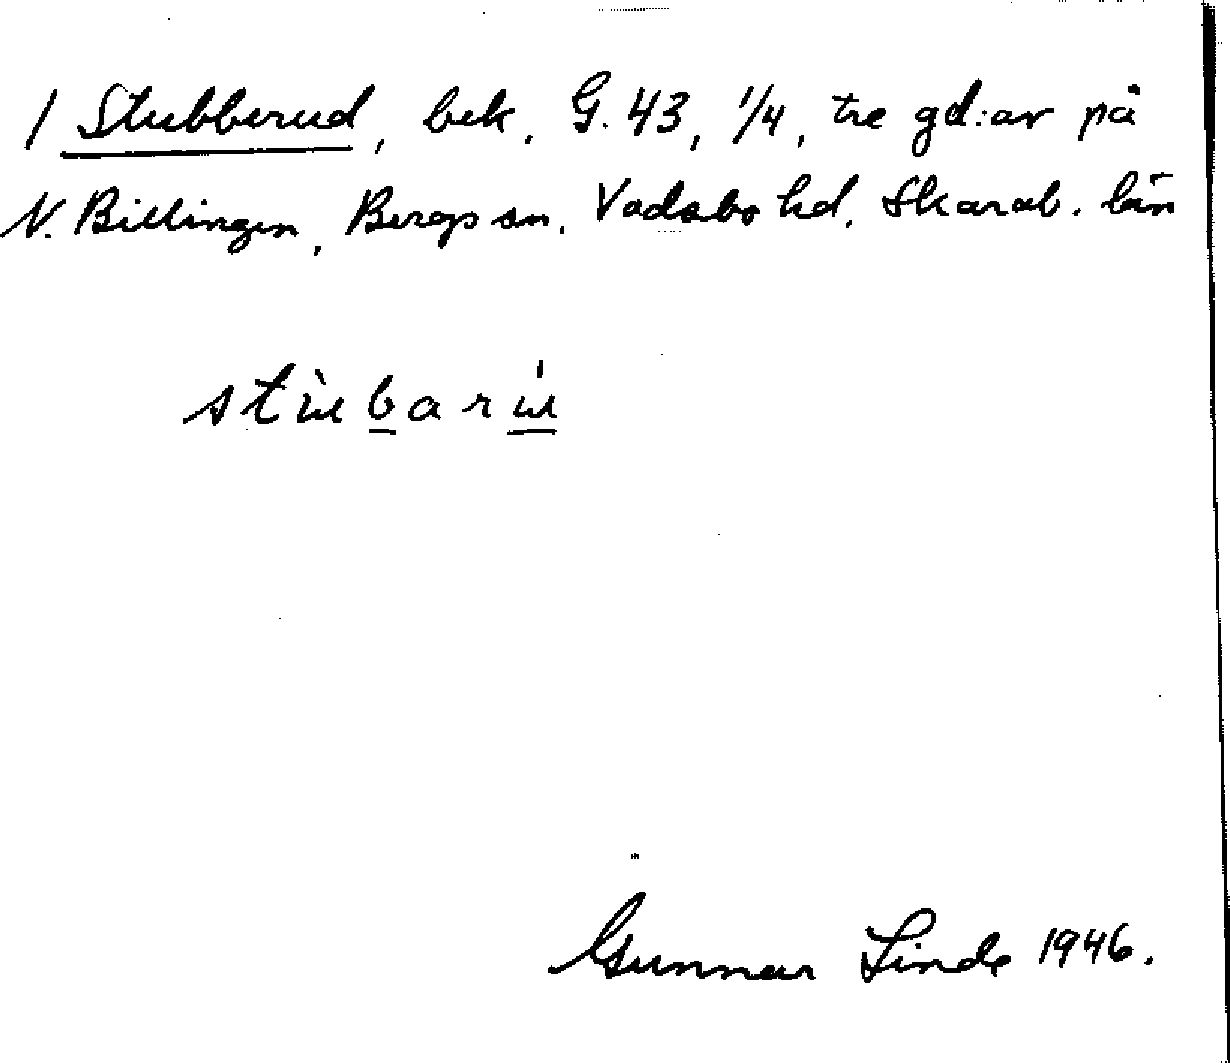 / Stubberud, bek. G. 43, 1/4, tre gd:ar på
N. Billingen, Bergs sn, Vadsbo hd. Skarab. län
stùbarú
Gunnar Linde 1946.